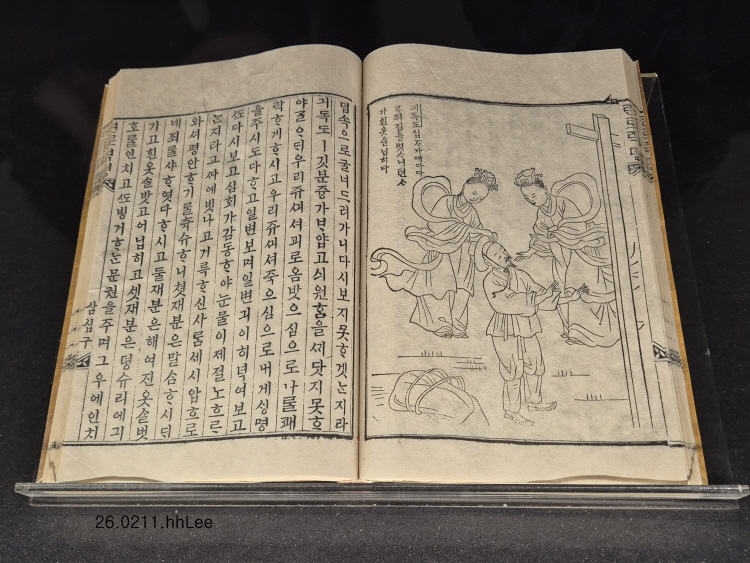 긔독도십ᄌᆞ가에다다
르죄짐을벗스니텬ᄉᆞ
가흰옷슬닙히다
덤속으로굴너드러가니다시보지못ᄒᆞ겟ᄂᆞᆫ지라
긔독도ㅣ깃분즁가ᄇᆡ얍고싀원홈을ᄭᆡᄃᆞᆺ지못ᄒᆞ
야ᄀᆞᆯᄋᆞᄃᆡ우리쥬ᄭᅴ셔괴로옴밧으심으로나ᄅᆞᆯ쾌
락ᄒᆞ게ᄒᆞ시고우리쥬ᄭᅴ셔죽으심으로내게ᄉᆡᆼ명
을주시도다ᄒᆞ고일변보며일변긔이히녁여보고
ᄯᅩ다시보고심회가감동ᄒᆞ야눈물이졔절노흐르
ᄂᆞᆫ지라그ᄯᅢ에빗나고거륵ᄒᆞᆫ신사ᄅᆞᆷ세시압흐로
와셔평안ᄒᆞ기ᄅᆞᆯ츅슈ᄒᆞ니쳣재분은말ᄉᆞᆷᄒᆞ시ᄃᆡ
네죄ᄅᆞᆯ샤ᄒᆞ엿다ᄒᆞ시고둘재분은해여진옷ᄉᆞᆯ벗
기고흰옷ᄉᆞᆯ밧고어닙히고셋재분은뎡슈리에긔
호ᄅᆞᆯ인치고ᄯᅩ빙거ᄒᆞᆯ문권을주며그우에인치
삼십구
26.0211.hhLee